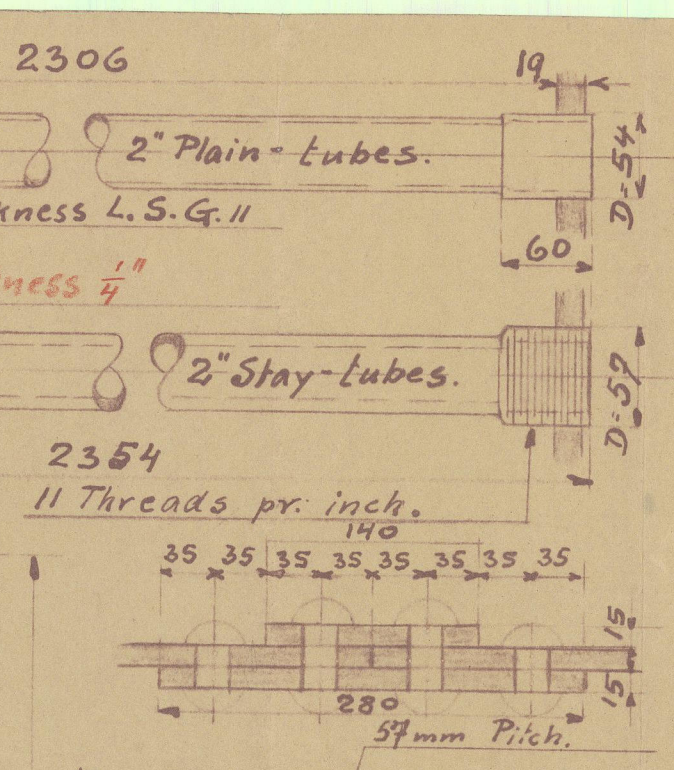 2306
19
2" Plain-tubes.
D=54
kness L.S.G.11
60
ness 1/4"
2" Stay-tubes.
D=57
2354
11 Threads pr. inch.
140
35 35 35 35 35 35 35 35
15
15
280
57mm Pitch.